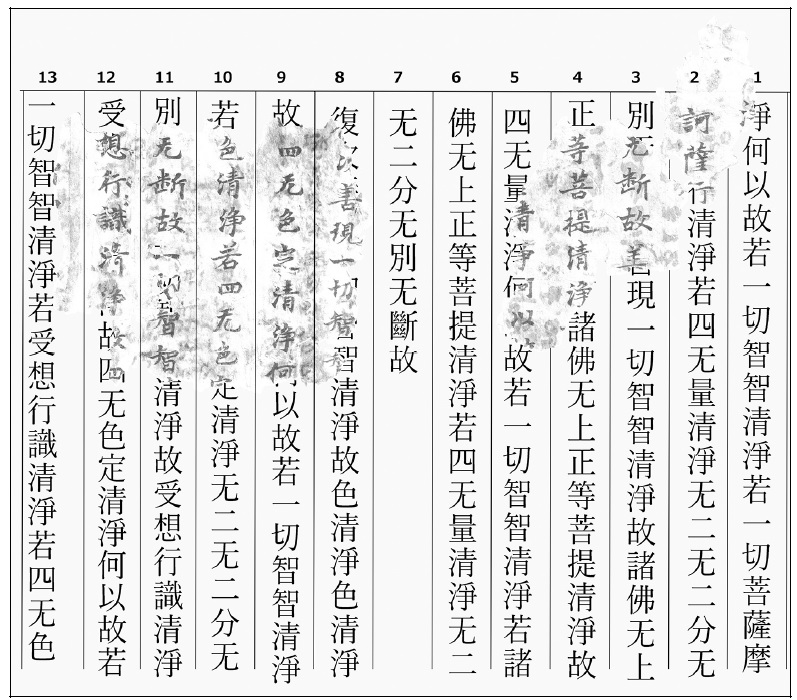 1 淨何以故若一切智智清淨若一切菩薩摩
2 訶薩行清淨若四无量清淨无二无二分无
3 別无断故善現一切智智清淨故諸佛无上
4 正等菩提清淨諸佛无上正等菩提清淨故
5 四无量清淨何以故若一切智智清淨若諸
6 佛无上正等菩提清淨若四无量清淨无二
7 无二分无別无斷故
8 復次善現一切智智清淨故色清淨色清淨
9 故四无色定清淨何以故若一切智智清淨
10 若色清淨若四无色定清淨无二无二分无
11 別无断故一切智智清淨故受想行識清淨
12 受想行識清淨故四无色定清淨何以故若
13 一切智智清淨若受想行識清淨若四无色